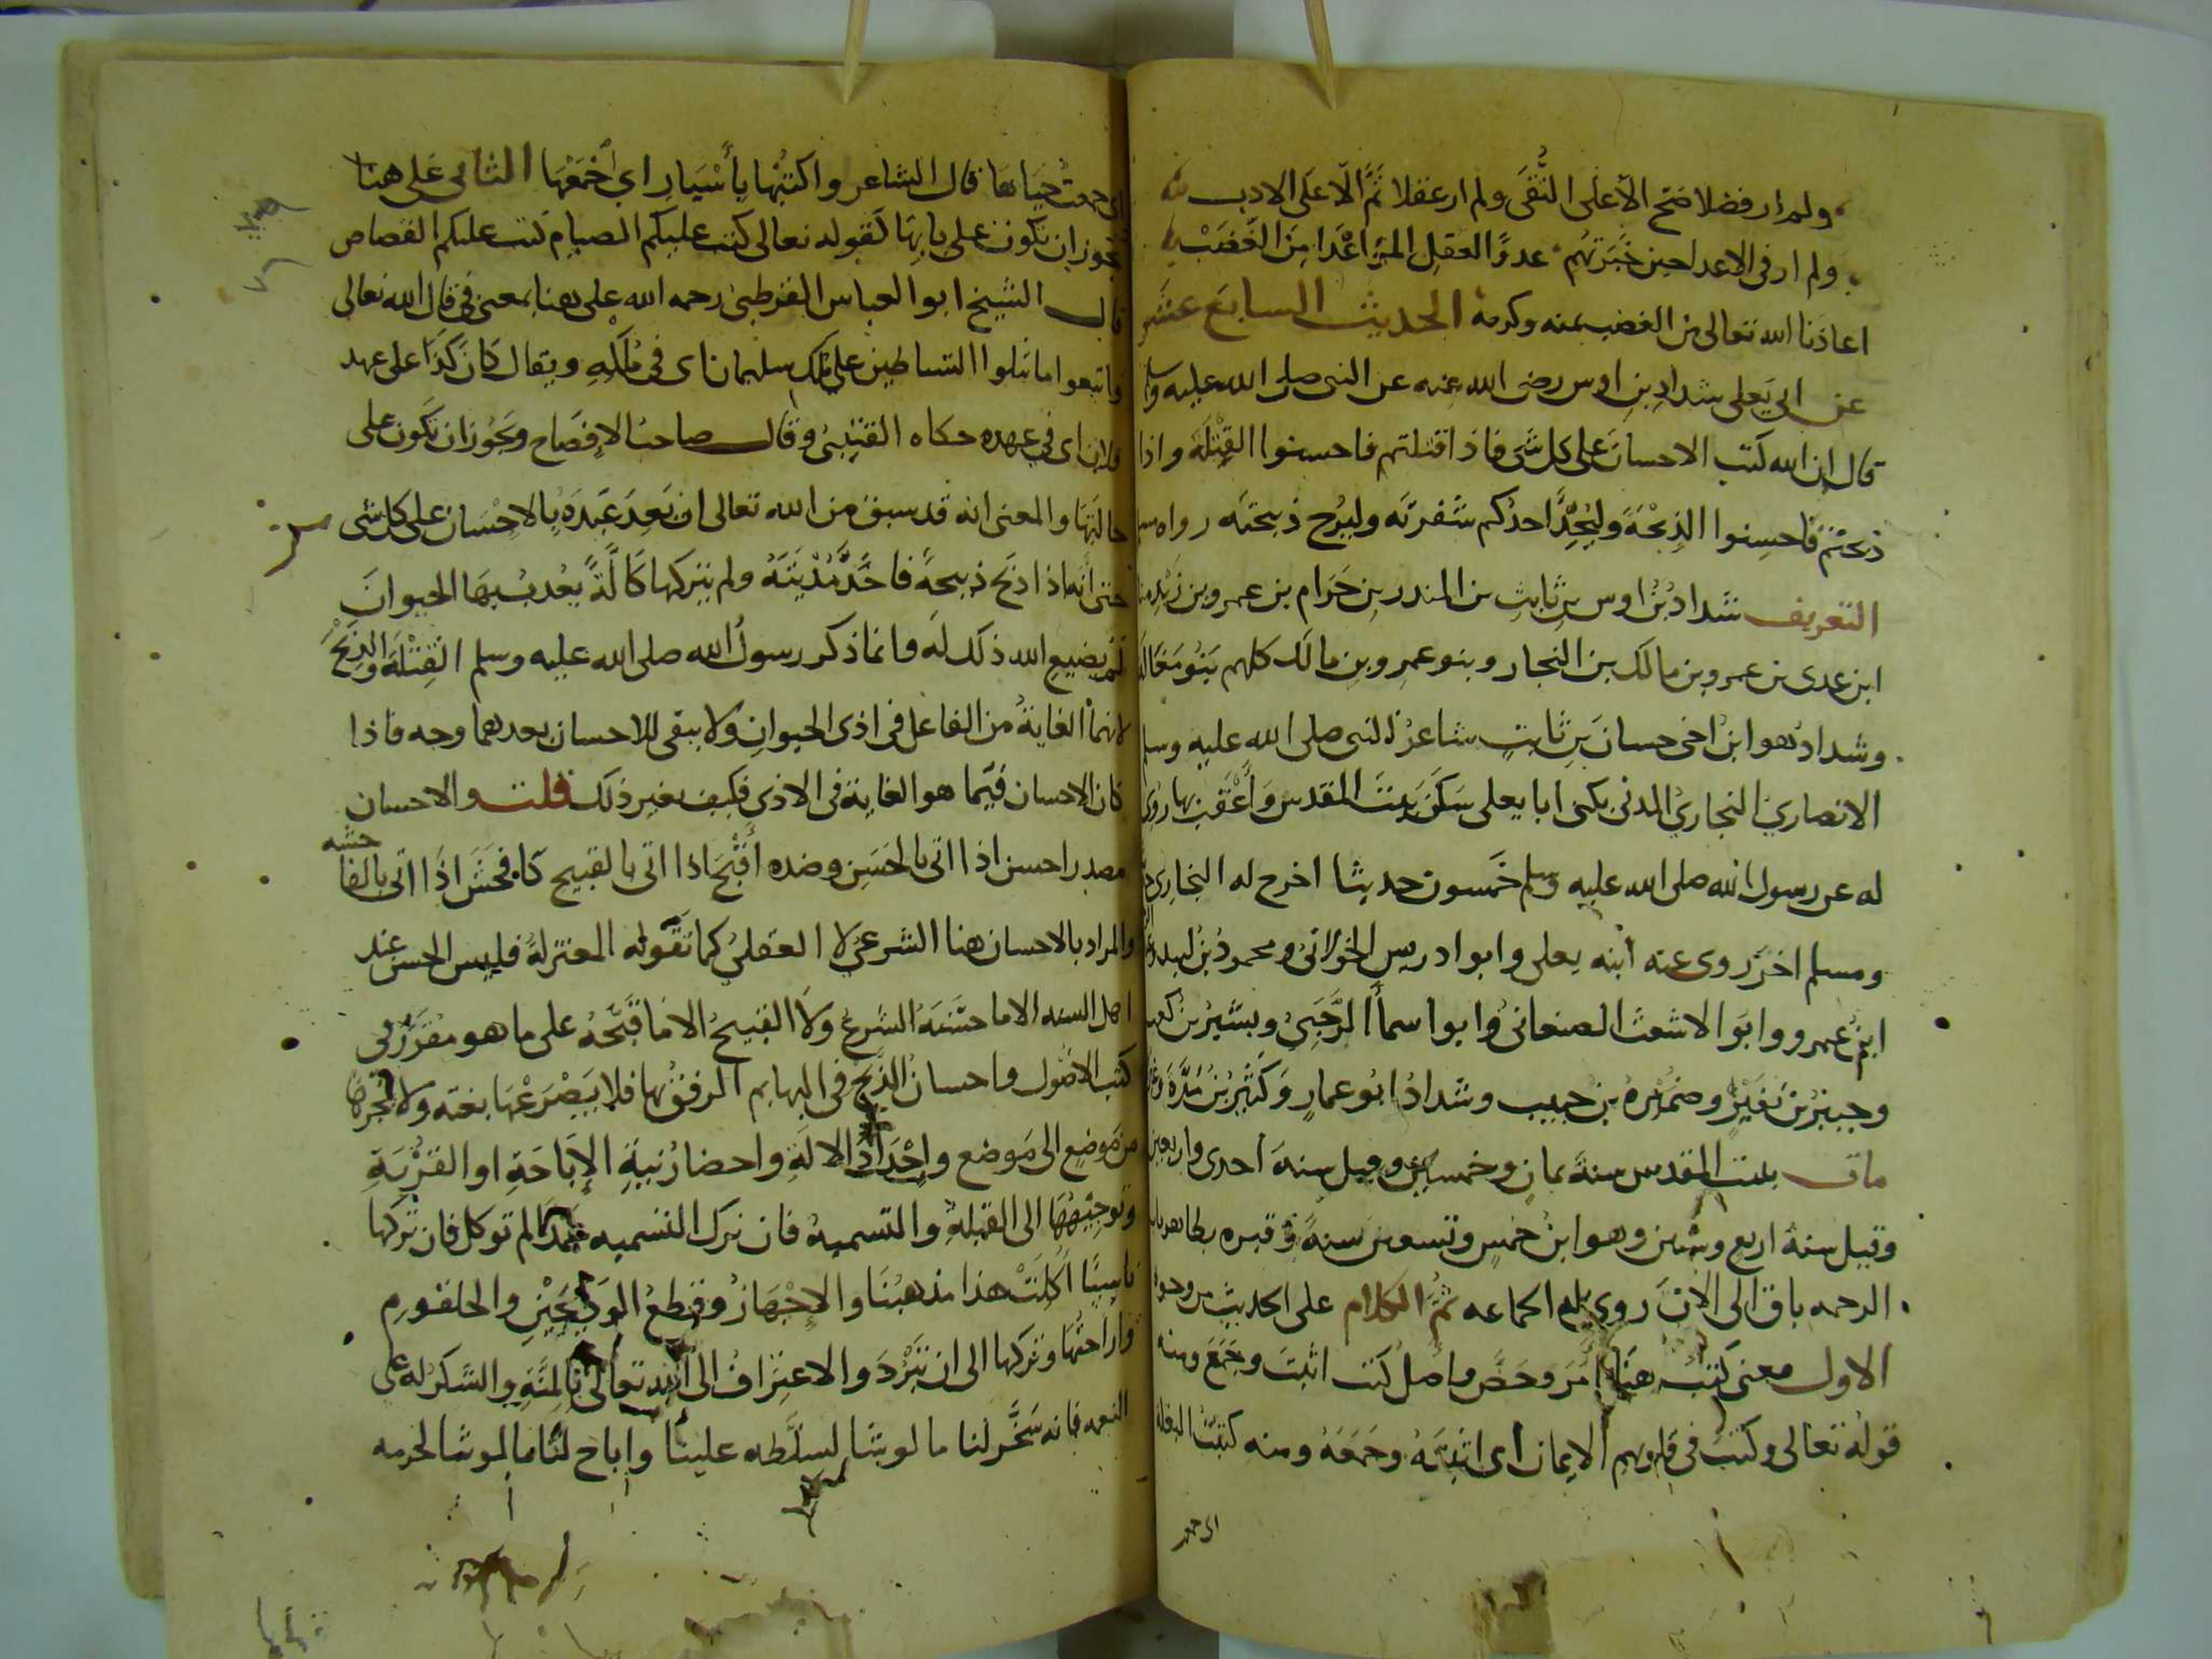 ولم ار فضلا صح الا على التقى ولم ار عقلا تم الا على الادب
ولم ار فى الاعدا حين خبرتهم عدوا لعقل المرء اعدا من الغضب
اعاذنا الله تعالى من الغضب بمنه وكرمه الحديث السابع عشر
عن ابى يعلى شداد بن اوس رضى الله عنه عن النبى صلى الله عليه وسلم
قال ان الله كتب الاحسان على كل شى فاذا قتلتم فاحسنوا القتلة واذا
ذبحتم فاحسنوا الذبحة وليحد احدكم شفرته وليرح ذبيحته رواه مسلم
التعريف شداد بن اوس بن ثابت بن المنذر بن حرام بن عمرو بن زيد مناة
ابن عدى بن عمرو بن مالك بن النجار وبنو عمرو بن مالك كلهم بنو مغالة
وشداد هو ابن اخى حسان بن ثابت شاعر النبى صلى الله عليه وسلم
الانصارى النجارى المدنى يكنى ابا يعلى سكن بيت المقدس واعقب بها روى
له عن رسول الله صلى الله عليه وسلم خمسون حديثا اخرج له البخارى
ومسلم اخر روى عنه ابنه يعلى وابو ادريس الخولانى ومحمود بن لبيد
ابن عمرو وابو الاشعث الصنعانى وابو اسما الرحبى وبشير بن كعب
وجبير بن نفير وضمرة بن حبيب وشداد ابو عمار وكثير بن مرة
مات ببيت المقدس سنة ثمان وخمسين وقيل سنة احدى واربعين
وقيل سنة اربع وستين وهو ابن خمس وتسعين سنة وقبره بظاهر باب
الرحمه باق الى الان روى له الجماعه ثم الكلام على الحديث من وجوه
الاول معنى كتب هنا امر وحض واصل كتب اثبت وجمع ومنه
قوله تعالى وكتب فى قلوبهم الايمان اى اثبته وجمعه ومنه كتبت البغلة
اى جمعت حياها قال الشاعر واكتبها باسيار اى اجمعها الثانى على هنا
يجوز ان تكون على بابها كقوله تعالى كتب عليكم الصيام كتب عليكم القصاص
قال الشيخ ابو العباس القرطبى رحمه الله على هنا بمعنى فى قال الله تعالى
واتبعوا ما تتلوا الشياطين على ملك سليمان اى فى ملكه ويقال كان كذا على عهد
فلان اى فى عهده حكاه القتيبى وقال صاحب الافصاح ويجوز ان تكون على
حالتها والمعنى انه قد سبق من الله تعالى ان يعد عبده بالاحسان على كل شى
حتى انه اذا ذبح ذبيحة فاحد مديته ولم يتركها كالة يعذب بها الحيوان
لم يضيع الله ذلك له وانما ذكر رسول الله صلى الله عليه وسلم القتلة والذبح
لانهما الغاية من الفاعل فى اذى الحيوان ولا يبقى للاحسان بعدهما وجه فاذا
كان الاحسان فيما هو الغاية فى الاذى فكيف بغير ذلك قلت والاحسان
مصدر احسن اذا اتى بالحسن وضده اقبح اذا اتى بالقبيح كافحش اذا اتى بالفا
حشه
والمراد بالاحسان هنا الشرعى لا العقلى كما تقوله المعتزلة فليس الحسن عند
اهل السنه الا ما حسنه الشرع ولا القبيح الا ما قبحه على ما هو مقرر فى
كتب الاصول واحسان الذبح فى البهايم الرفق بها فلا يصرعها بغتة ولا يجرها
من موضع الى موضع واحداد الالة واحضار نية الاباحة او القربة
وتوجيهها الى القبلة والتسمية فان ترك التسميه عمدا لم توكل فان تركها
ناسيا اكلت هذا مذهبنا والاجهاز وقطع الودجين والحلقوم
واراحتها وتركها الى ان تبرد والاعتراف الى الله تعالى بالمنة والشكر له على
النعمه فانه سخر لنا ما لو شا لسلطه علينا واباح لنا ما لو شا لحرمه